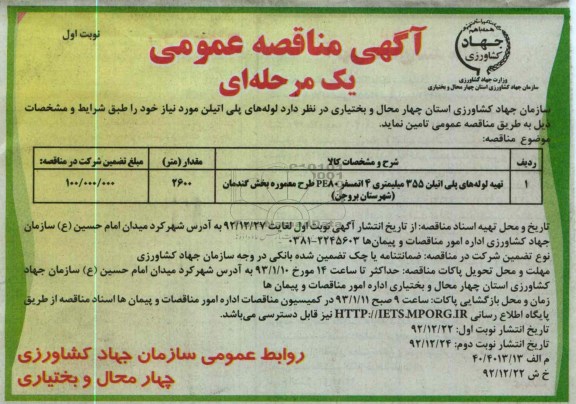 نوبت اول
همه با هم
جهاد
کشاورزی
وزارت جهاد کشاورزی
سازمان جهاد کشاورزی استان چهار محال و بختیاری
آگهی مناقصه عمومی
یک مرحله‌ای
سازمان جهاد کشاورزی استان چهار محال و بختیاری در نظر دارد لوله‌های پلی اتیلن مورد نیاز خود را طبق شرایط و مشخصات
ذیل به طریق مناقصه عمومی تامین نماید.
موضوع مناقصه:
ردیف شرح و مشخصات کالا مقدار (متر) مبلغ تضمین شرکت در مناقصه:
۱ تهیه لوله‌های پلی اتیلن ۳۵۵ میلیمتری ۴ اتمسفر PE۸۰ طرح معموره بخش گندمان ۲۶۰۰ ۱۰۰/۰۰۰/۰۰۰
(شهرستان بروجن)
تاریخ و محل تهیه اسناد مناقصه: از تاریخ انتشار آگهی نوبت اول لغایت ۹۲/۱۲/۲۷ به آدرس شهرکرد میدان امام حسین (ع) سازمان
جهاد کشاورزی اداره امور مناقصات و پیمان‌ها ۲۲۴۵۶۰۳-۰۳۸۱
نوع تضمین شرکت در مناقصه: ضمانتنامه یا چک تضمین شده بانکی در وجه سازمان جهاد کشاورزی
مهلت و محل تحویل پاکات مناقصه: حداکثر تا ساعت ۱۴ مورخ ۹۳/۱/۱۰ به آدرس شهرکرد میدان امام حسین (ع) سازمان جهاد
کشاورزی استان چهار محال و بختیاری اداره امور مناقصات و پیمان ها
زمان و محل بازگشایی پاکات: ساعت ۹ صبح ۹۳/۱/۱۱ در کمیسیون مناقصات اداره امور مناقصات و پیمان ها اسناد مناقصه از طریق
پایگاه اطلاع رسانی HTTP://IETS.MPORG.IR نیز قابل دسترسی می‌باشد.
تاریخ انتشار نوبت اول: ۹۲/۱۲/۲۲
تاریخ انتشار نوبت دوم: ۹۲/۱۲/۲۴
م الف ۴۰/۴۰۱۳/۱۳
خ ش ۹۲/۱۲/۲۲
روابط عمومی سازمان جهاد کشاورزی
چهار محال و بختیاری